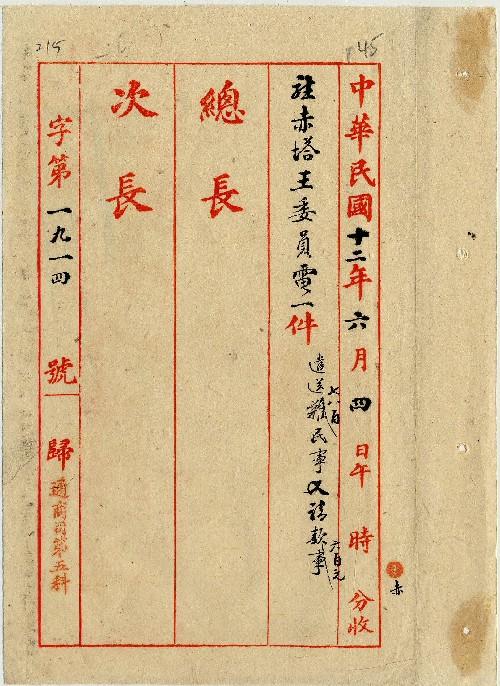 215
45
中華民國十二年六月四日午時分收
赤
駐赤塔王委員電一件
遣送難民事又請款事
七八百
六百元
總長
次長
字第一九一四號歸
通商司第五科